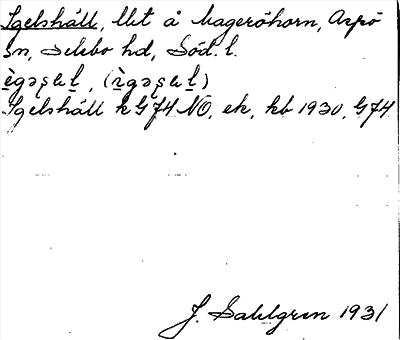 Igelshäll, lht å Mageröhorn, Aspö
sn, Selebo hd, Söd. l.
Igelshäll k G74 NO, ek, kb 1930, G74
J. Sahlgren 1931